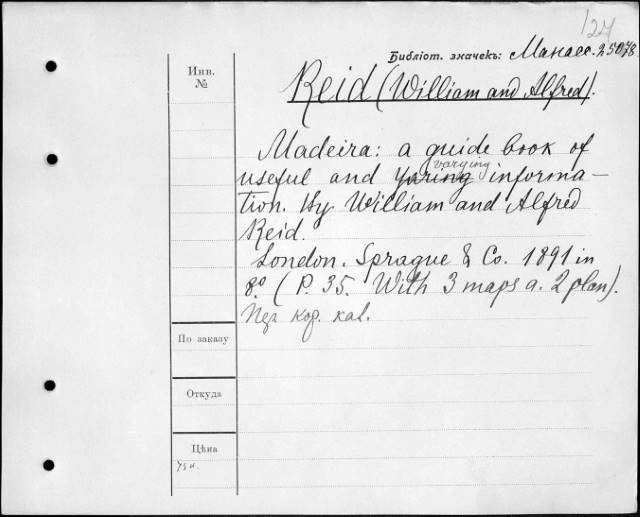 127
Библіот. значекъ: Манаес. 25078
Инв.
№
Reid (William and Alfred).
Madeira: a guide book of
varying
useful and informa-
tion. By William and Alfred
Reid.
London. Sprague & Co. 1891 in
8º. (P. 35. With 3 maps a. 2 plan).
кор. кал.
По заказу
Откуда
Цѣна